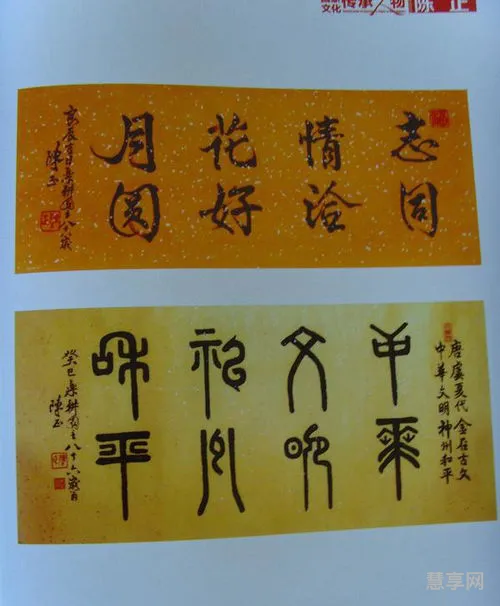 文化 传承人物 陈正
志同
情洽
花好
月圆
陳正
唐虞夏代 金在古文
中華文明 神州和平
中華
文明
神州
和平
癸巳
八十六歲
陳正
慧享网